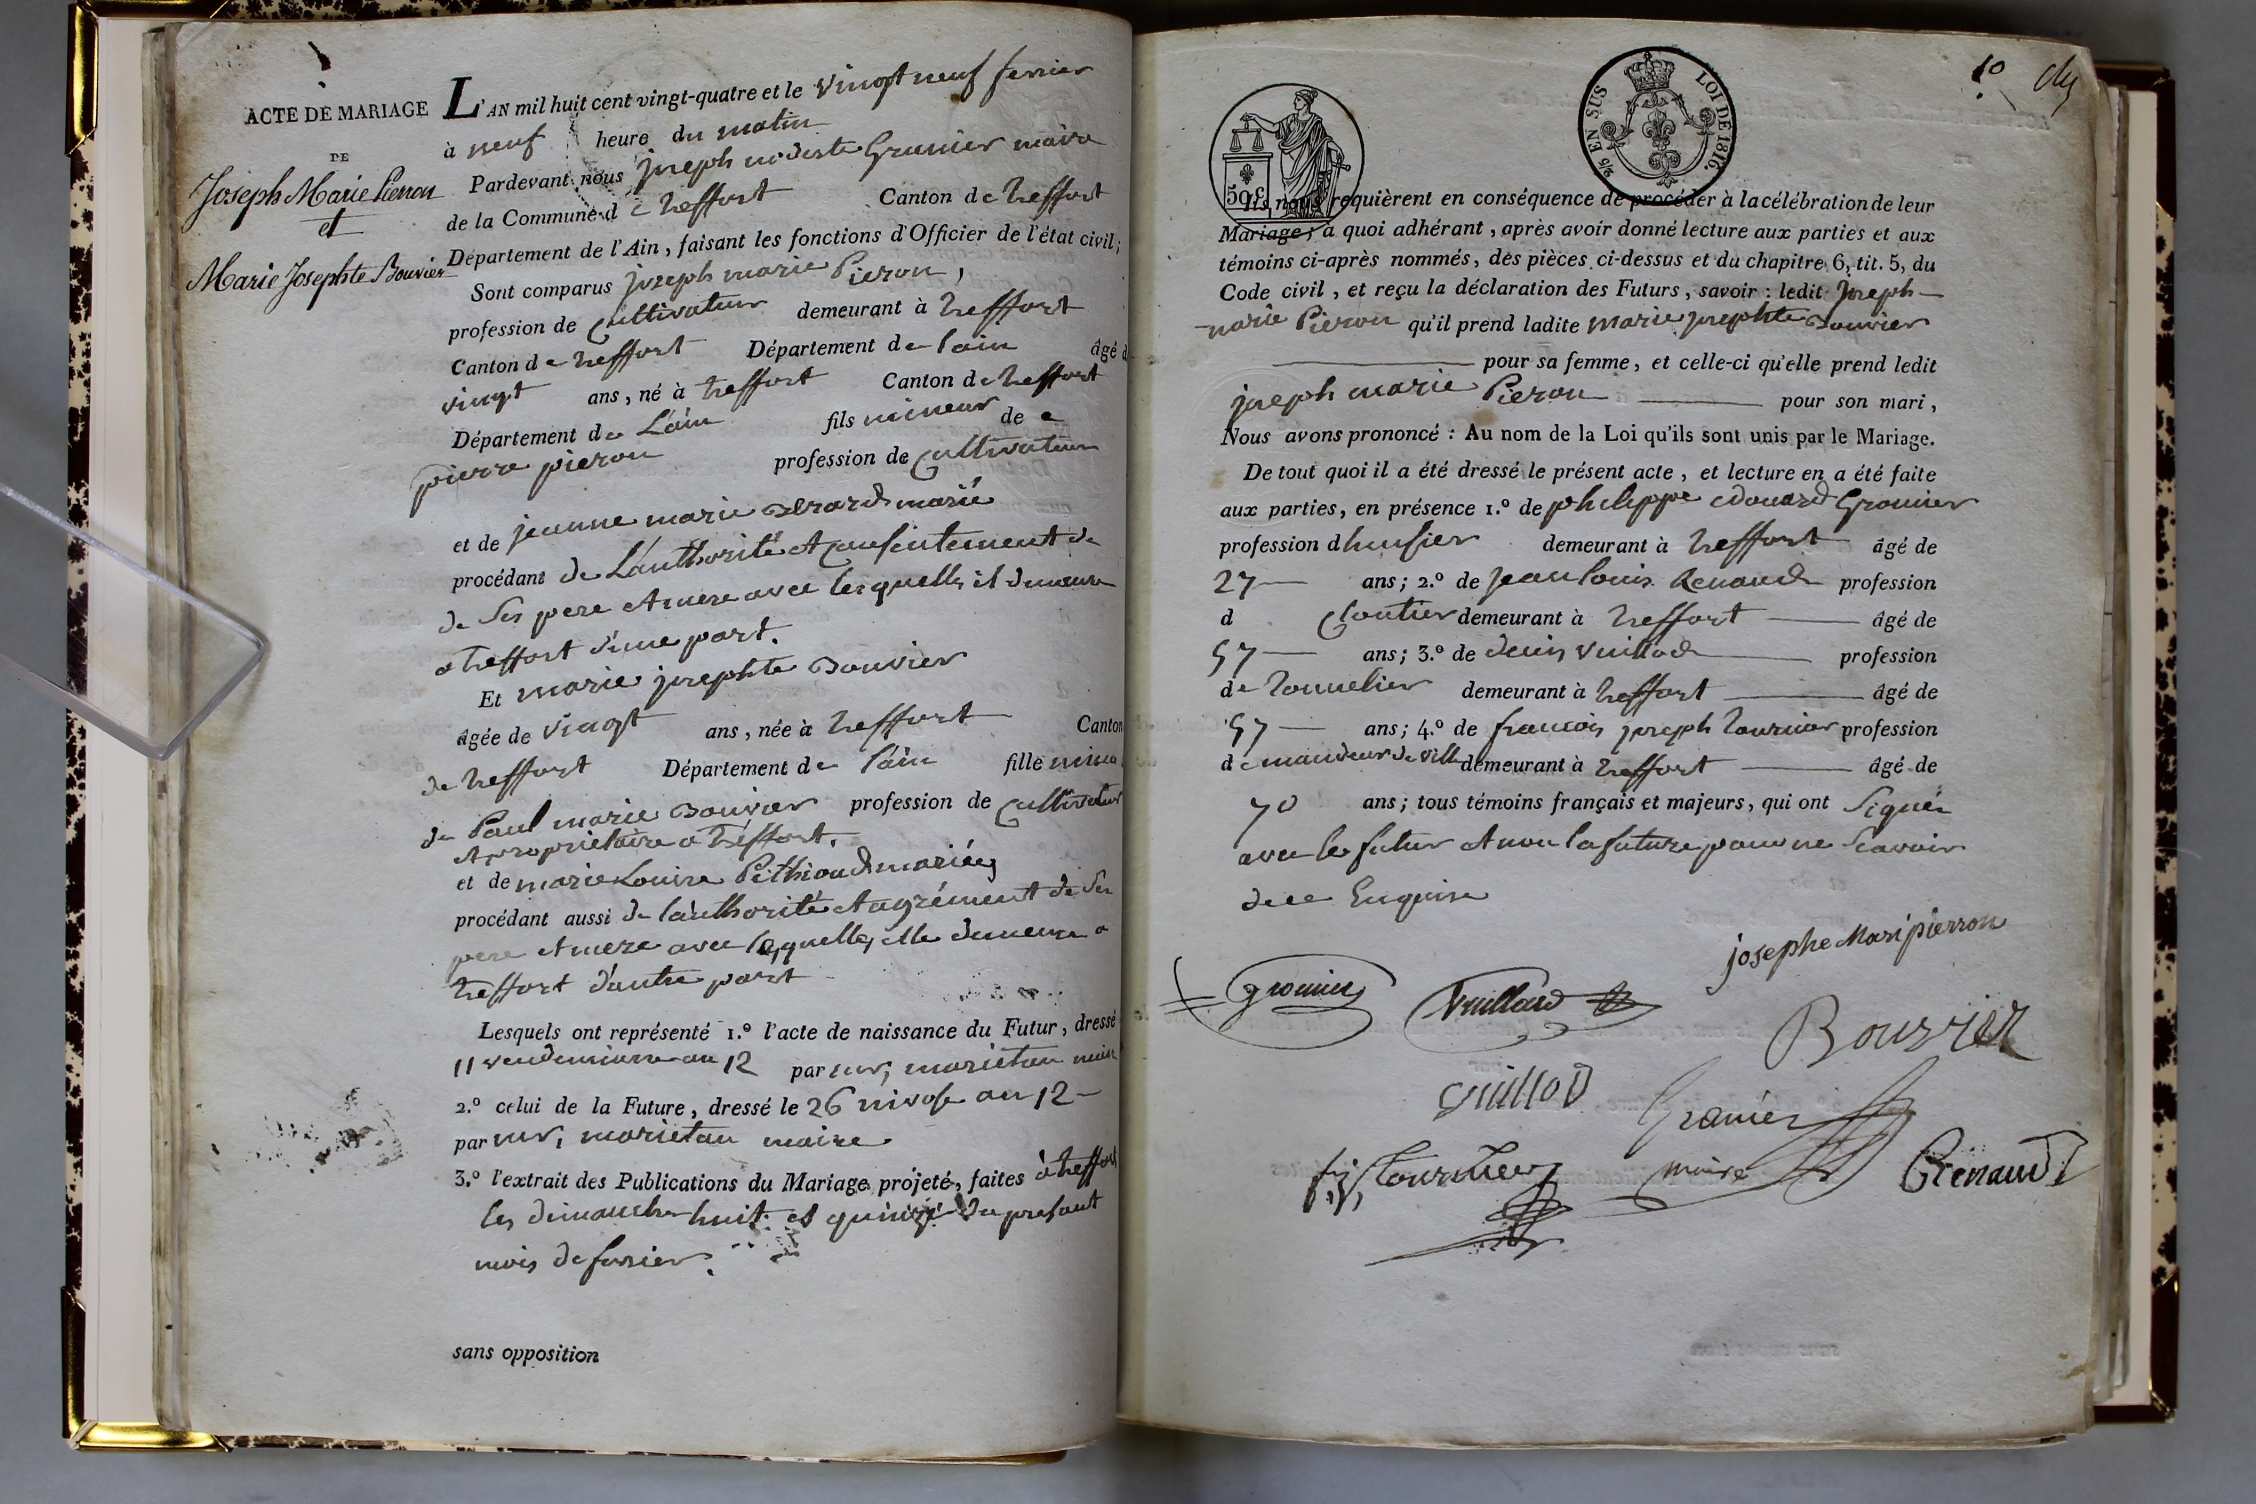 ACTE DE MARIAGE
DE
Joseph Marie Pieron
et
Marie Josephte Bouvier
L'AN mil huit cent vingt-quatre et le vingt neuf fevrier
à neuf heure du matin
Pardevant nous joseph modeste Gromier maire
de la Commune de treffort Canton de treffort
Département de l'Ain, faisant les fonctions d'Officier de l'état civil;
Sont comparus joseph marie Pieron,
profession de cultivateur demeurant à treffort
Canton de treffort Département de lain âgé d
vingt ans, né à treffort Canton de treffort
Département de L'ain fils mineur de
pierre pieron profession de cultivateur
et de jeanne marie marié
procédant de L'authorité et consentement de
de Ses pere et mere avec lesquelles il demeure
a treffort d'une part.
Et marie josephte Bouvier
âgée de vingt ans, née à treffort Canton
de treffort Département de l'ain fille
de Paul marie Bouvier profession de cultivateur
et proprietaire a treffort.
et de marie Louise Pethioud mariés
procédant aussi de l'authorité et agrément de Ses
pere et mere avec lesquelles elle demeure a
treffort d'autre part
Lesquels ont représenté 1.º l'acte de naissance du Futur, dressé
11 vendemiaire an 12 par mr, marietan maire
2.º celui de la Future, dressé le 26 nivose an 12
par mr, marietan maire
3.º l'extrait des Publications du Mariage projeté, faites à treffort
les dimanches huit et quinze du present
mois de fevrier.
sans opposition
10
50 c.
2/5 EN SUS LOI DE 1816.
Ils nous requièrent en conséquence de procéder à la célébration de leur
Mariage; à quoi adhérant, après avoir donné lecture aux parties et aux
témoins ci-après nommés, des pièces ci-dessus et du chapitre 6, tit. 5, du
Code civil, et reçu la déclaration des Futurs, savoir: ledit Joseph
marie Pieron qu'il prend ladite marie josephte Bouvier
pour sa femme, et celle-ci qu'elle prend ledit
joseph marie Pieron pour son mari,
Nous avons prononcé: Au nom de la Loi qu'ils sont unis par le Mariage.
De tout quoi il a été dressé le présent acte, et lecture en a été faite
aux parties, en présence 1.º de philippe edouard Gromier
profession d huissier demeurant à treffort âgé de
27 ans; 2.º de jean louis Renaud profession
d cloutier demeurant à treffort âgé de
57 ans; 3.º de denis vuillod profession
de tonnelier demeurant à treffort âgé de
57 ans; 4.º de francois joseph tournier profession
de mandeur de ville demeurant à treffort âgé de
70 ans; tous témoins français et majeurs, qui ont Signés
avec le futur et non la future pour ne Scavoir
de ce Enquise
josephe Mari pierron
gromier
Vuillard
Bouvier
Vuillod
Gromier
maire
f. j. tournier
Renaud